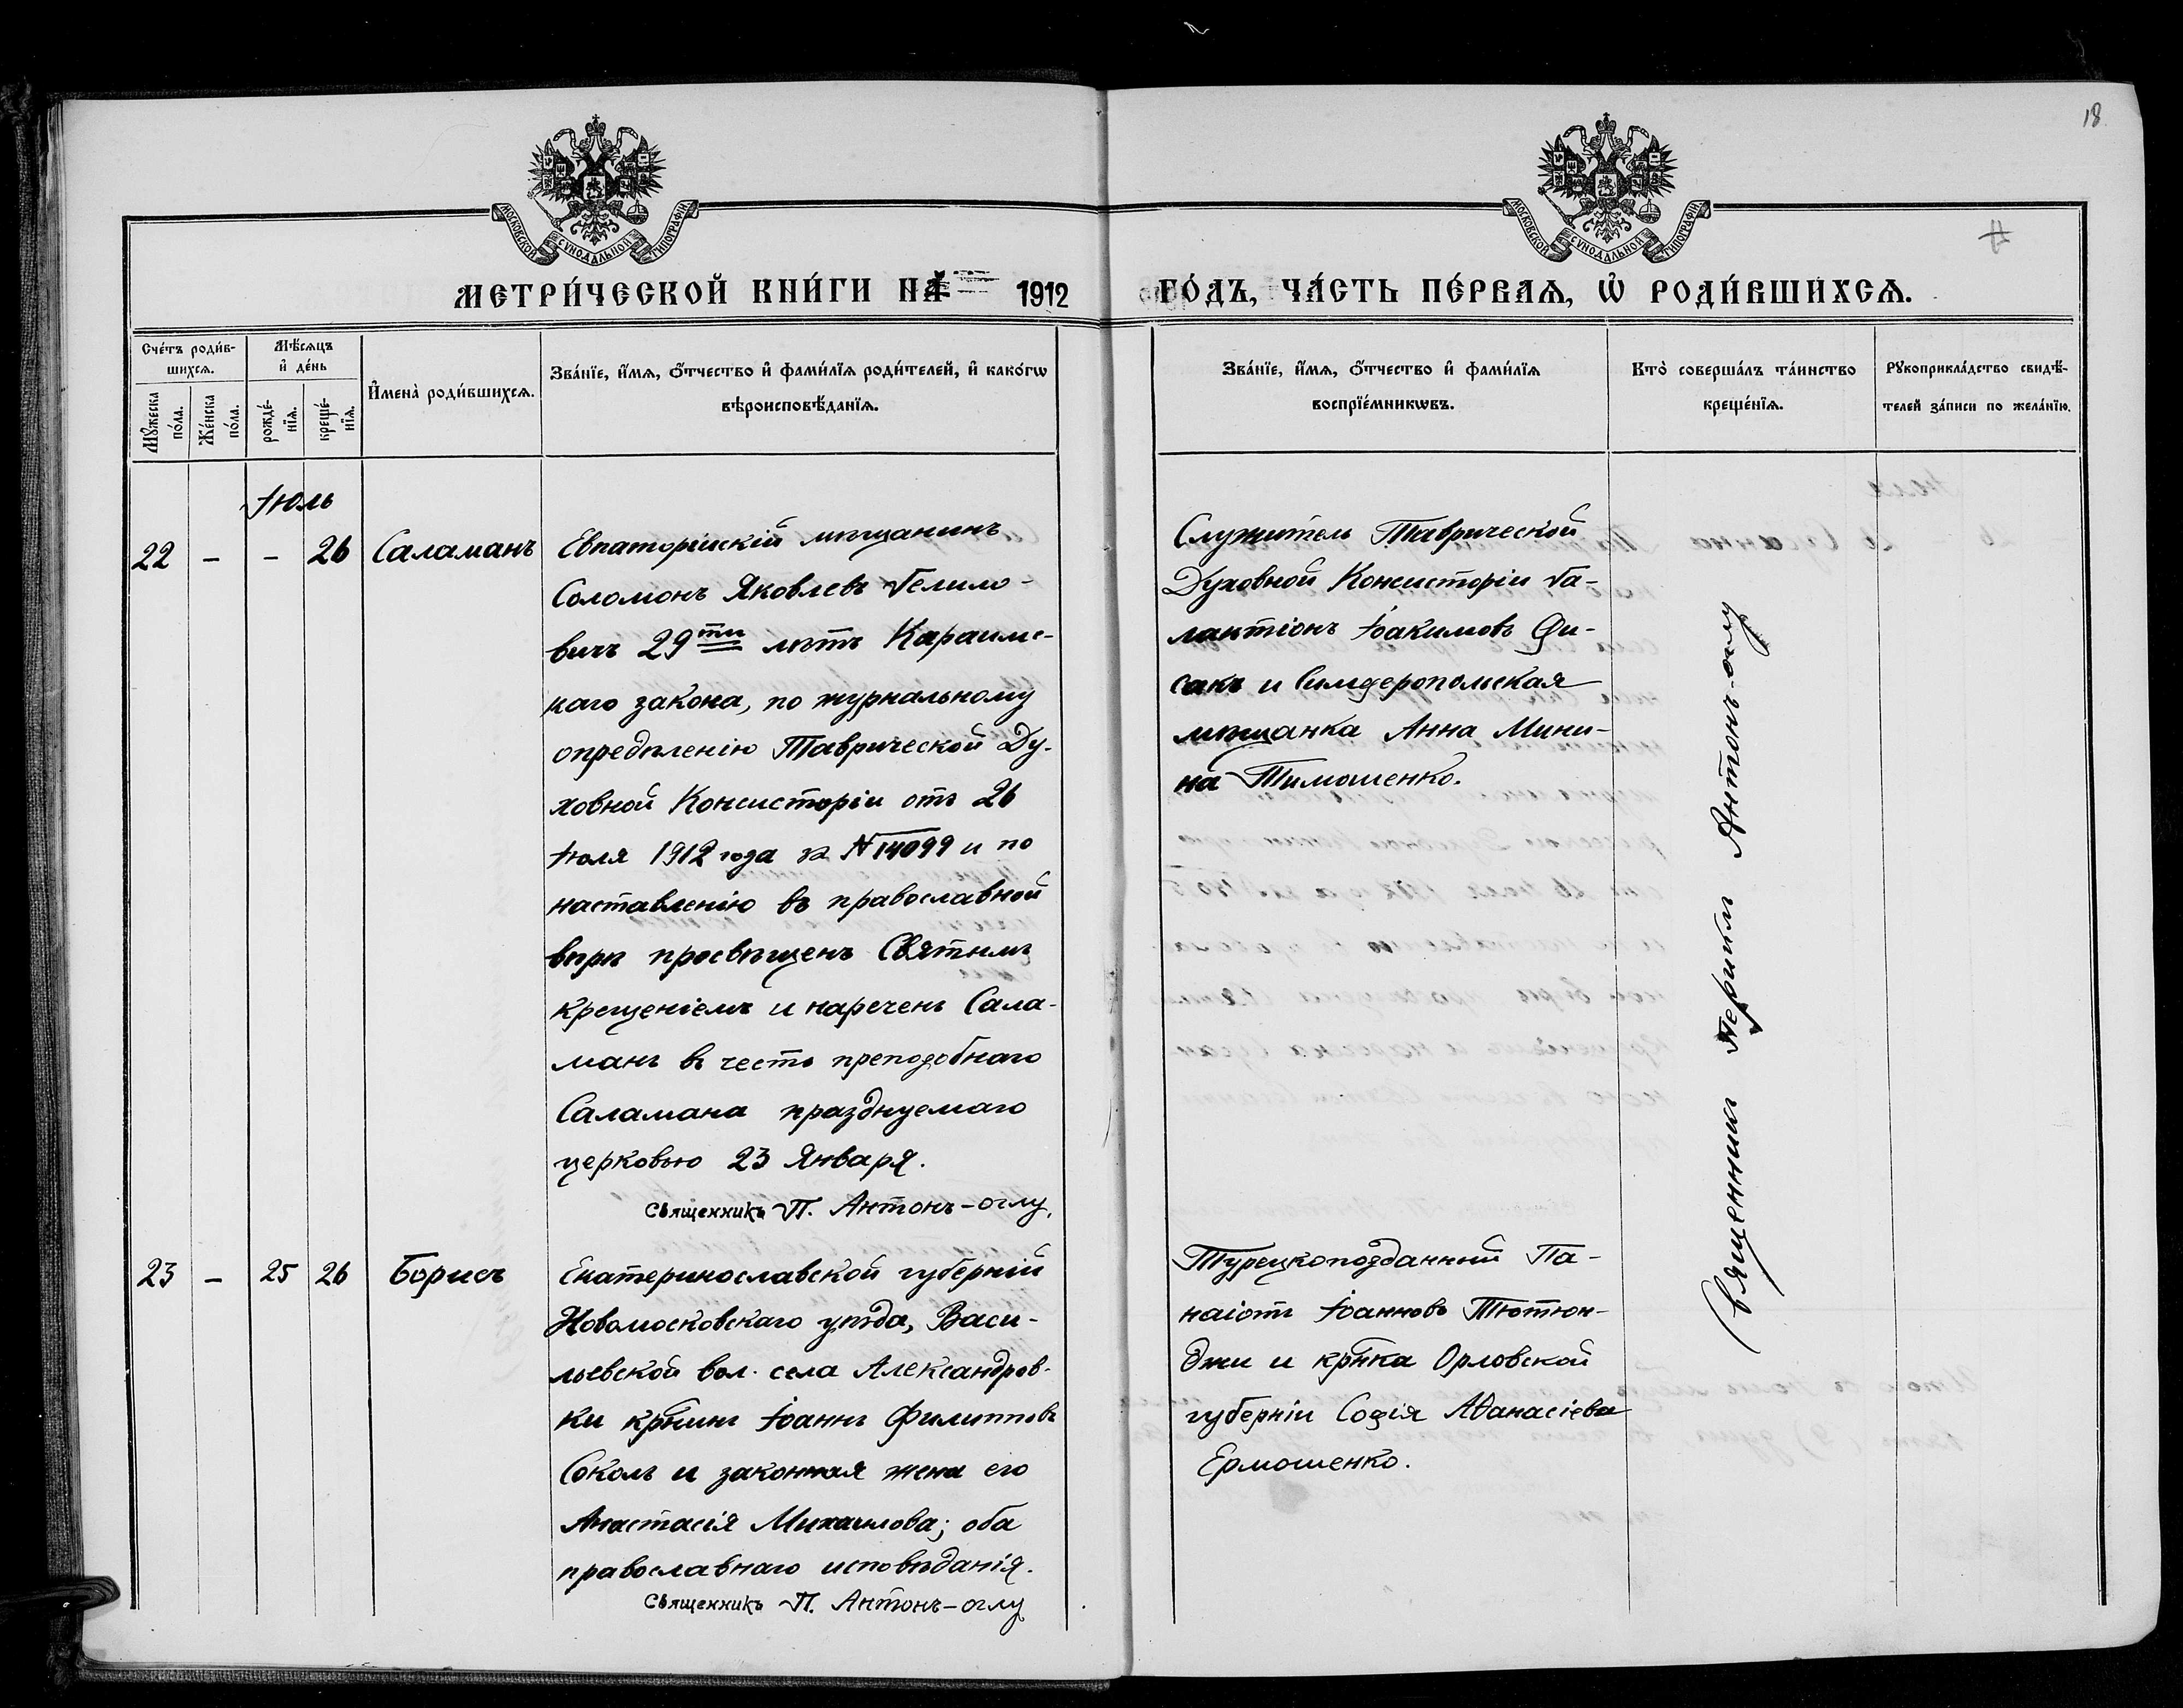 18
МОСКОВСКОЙ СУНОДАЛЬНОЙ ТИПОГРАФІИ
МОСКОВСКОЙ СУНОДАЛЬНОЙ ТИПОГРАФІИ
МЕТРИ́ЧЕСКОЙ КНИ́ГИ НА 1912
ГО́ДЪ, ЧА́СТЬ ПЕ́РВАѦ, Ѡ РОДИ́ВШИХСѦ.
Сче́тъ роди́в-
шихсѧ.
Мꙋжеска по́ла.
Же́нска по́ла.
Мѣ́сѧцъ
и҆ де́нь
рожде́-
нїѧ.
креще́-
нїѧ.
И҆мена̀ роди́вшихсѧ.
Зва́нїе, и҆́мѧ, ѻ҆́тчество и҆ фами́лїѧ роди́телей, и҆ како́гѡ
вѣроисповѣ́данїѧ.
Зва́нїе, и҆́мѧ, ѻ҆́тчество и҆ фами́лїѧ
воспрїе́мникѡвъ.
Кто̀ соверша́лъ та́инство
креще́нїѧ.
Рꙋкоприкла́дство свидѣ́-
телей за́писи по жела́нїю.
Іюль
22 – – 26 Саламанъ
Евпаторійскій мѣщанинъ
Соломонъ Яковлевъ Гелило-
вичъ 29ти лѣтъ Караимс-
каго закона, по журнальному
опредѣленію Таврической Ду-
ховной Консисторіи отъ 26
Іюля 1912 года за N 14099 и по
наставленію въ православной
вѣрѣ просвѣщенъ Святымъ
крещеніемъ и нареченъ Сала-
манъ въ честь преподобнаго
Саламана празднуемаго
церковью 23 Января.
Священникъ П. Антонъ-оглу.
Служитель Таврической
Духовной Консисторіи Га-
лактіонъ Іоакимовъ Фи-
сакъ и Симферопольская
мѣщанка Анна Мини-
на Тимошенко.
Священникъ Антонъ-оглу
23 – 25 26 Борисъ
Екатеринославской губерніи
Новомосковскаго уѣзда, Васи-
льевской вол. села Александров-
ки крнинъ Іоаннъ Филипповъ
Соколъ и законная жена его
Анастасія Михаилова; оба
православнаго исповѣданія.
Священникъ П. Антонъ-оглу
Турецкоподданный Па-
наіотъ Іоанновъ Тютюн-
джи и крнка Орловской
губерніи Софія Аѳанасіева
Ермошенко.